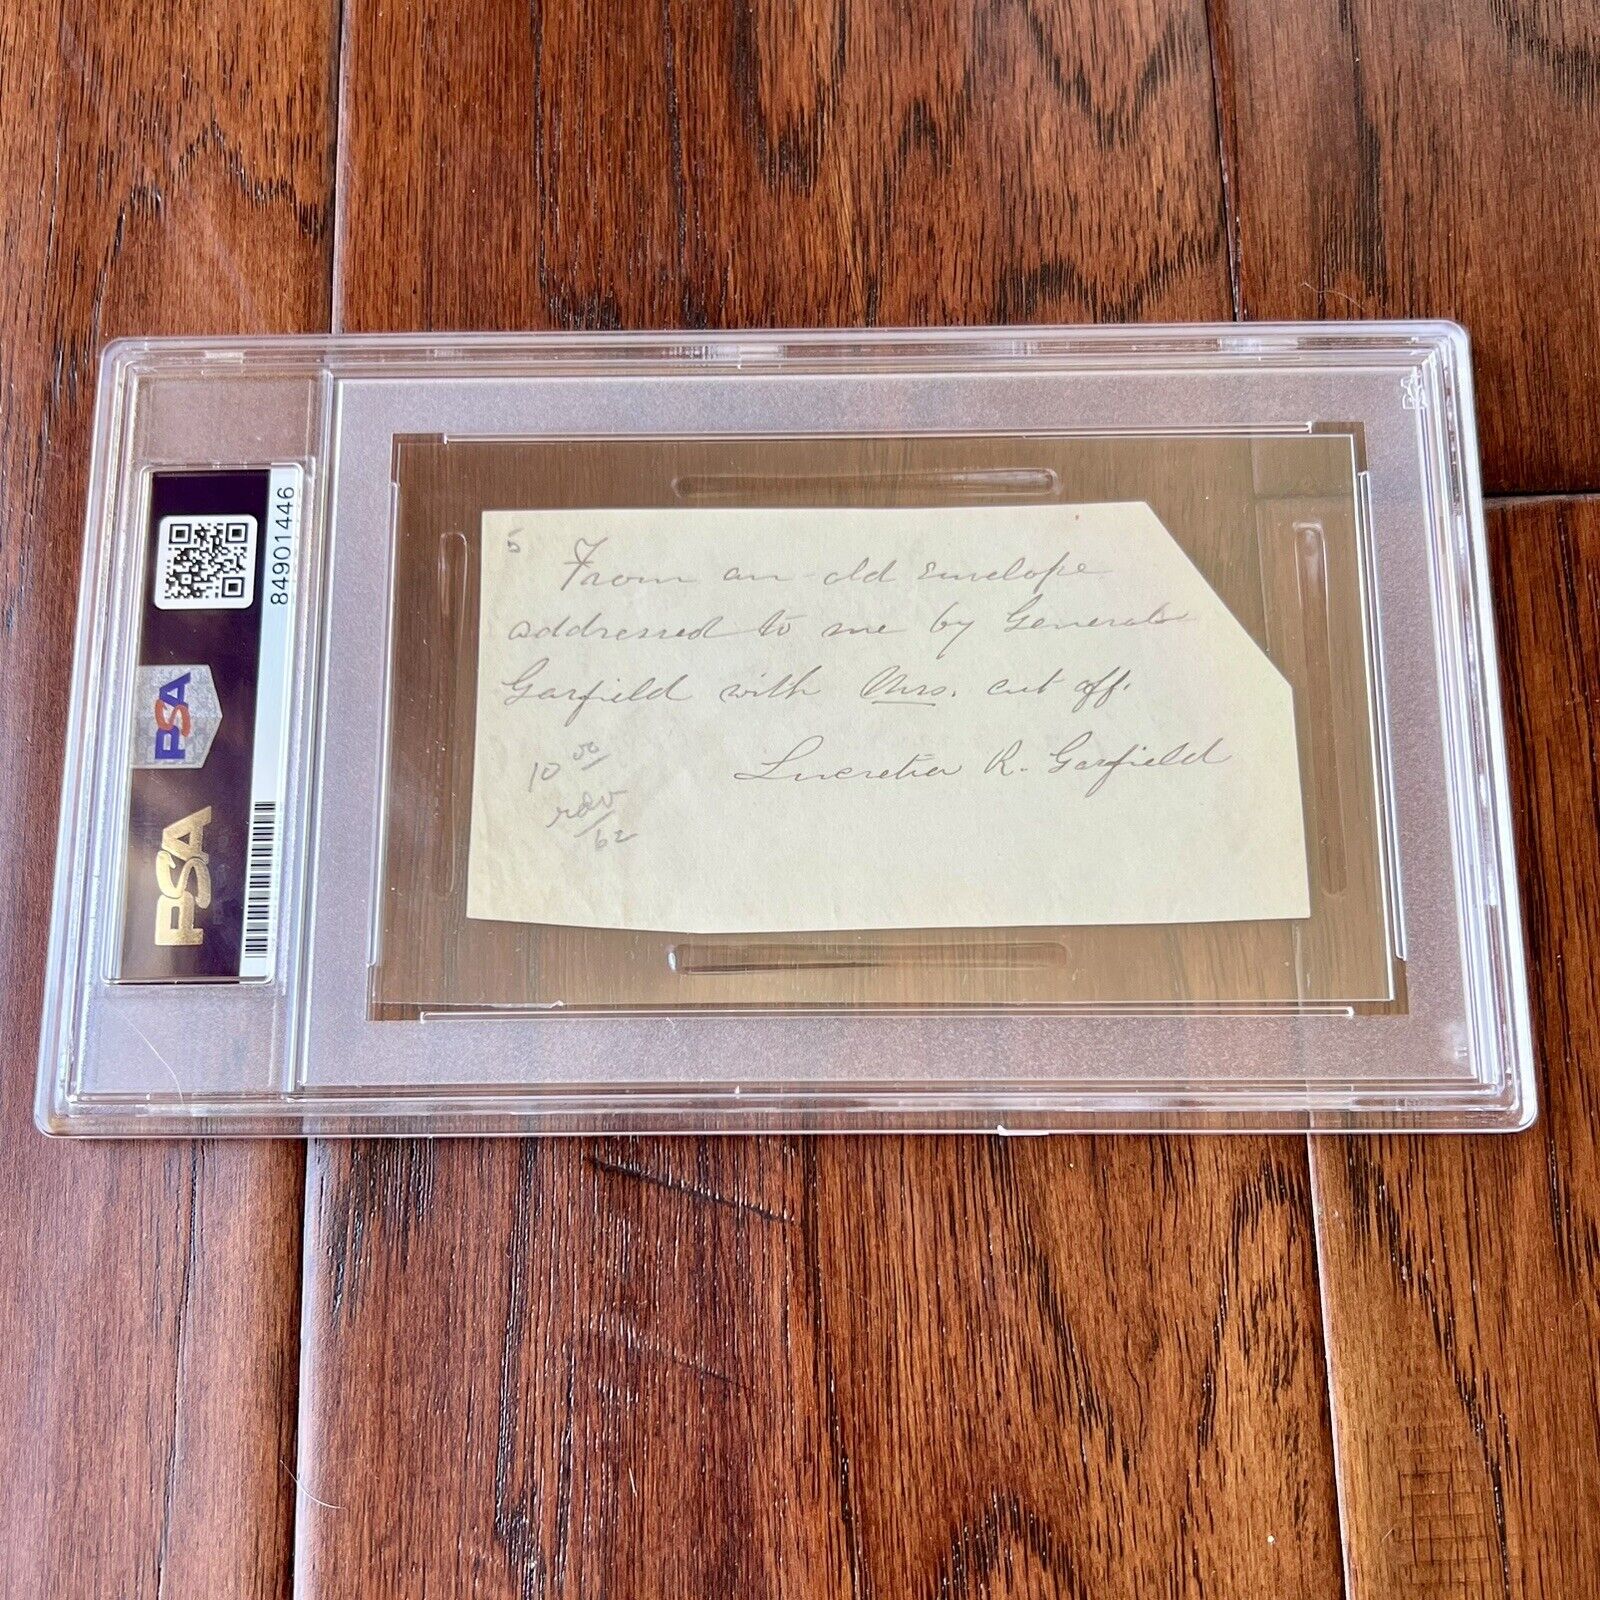 84901446
PSA
PSA
5
From an old envelope
addressed to me by General
Garfield with Mrs. cut off.
Lucretia R. Garfield
10 00
rdv
/62